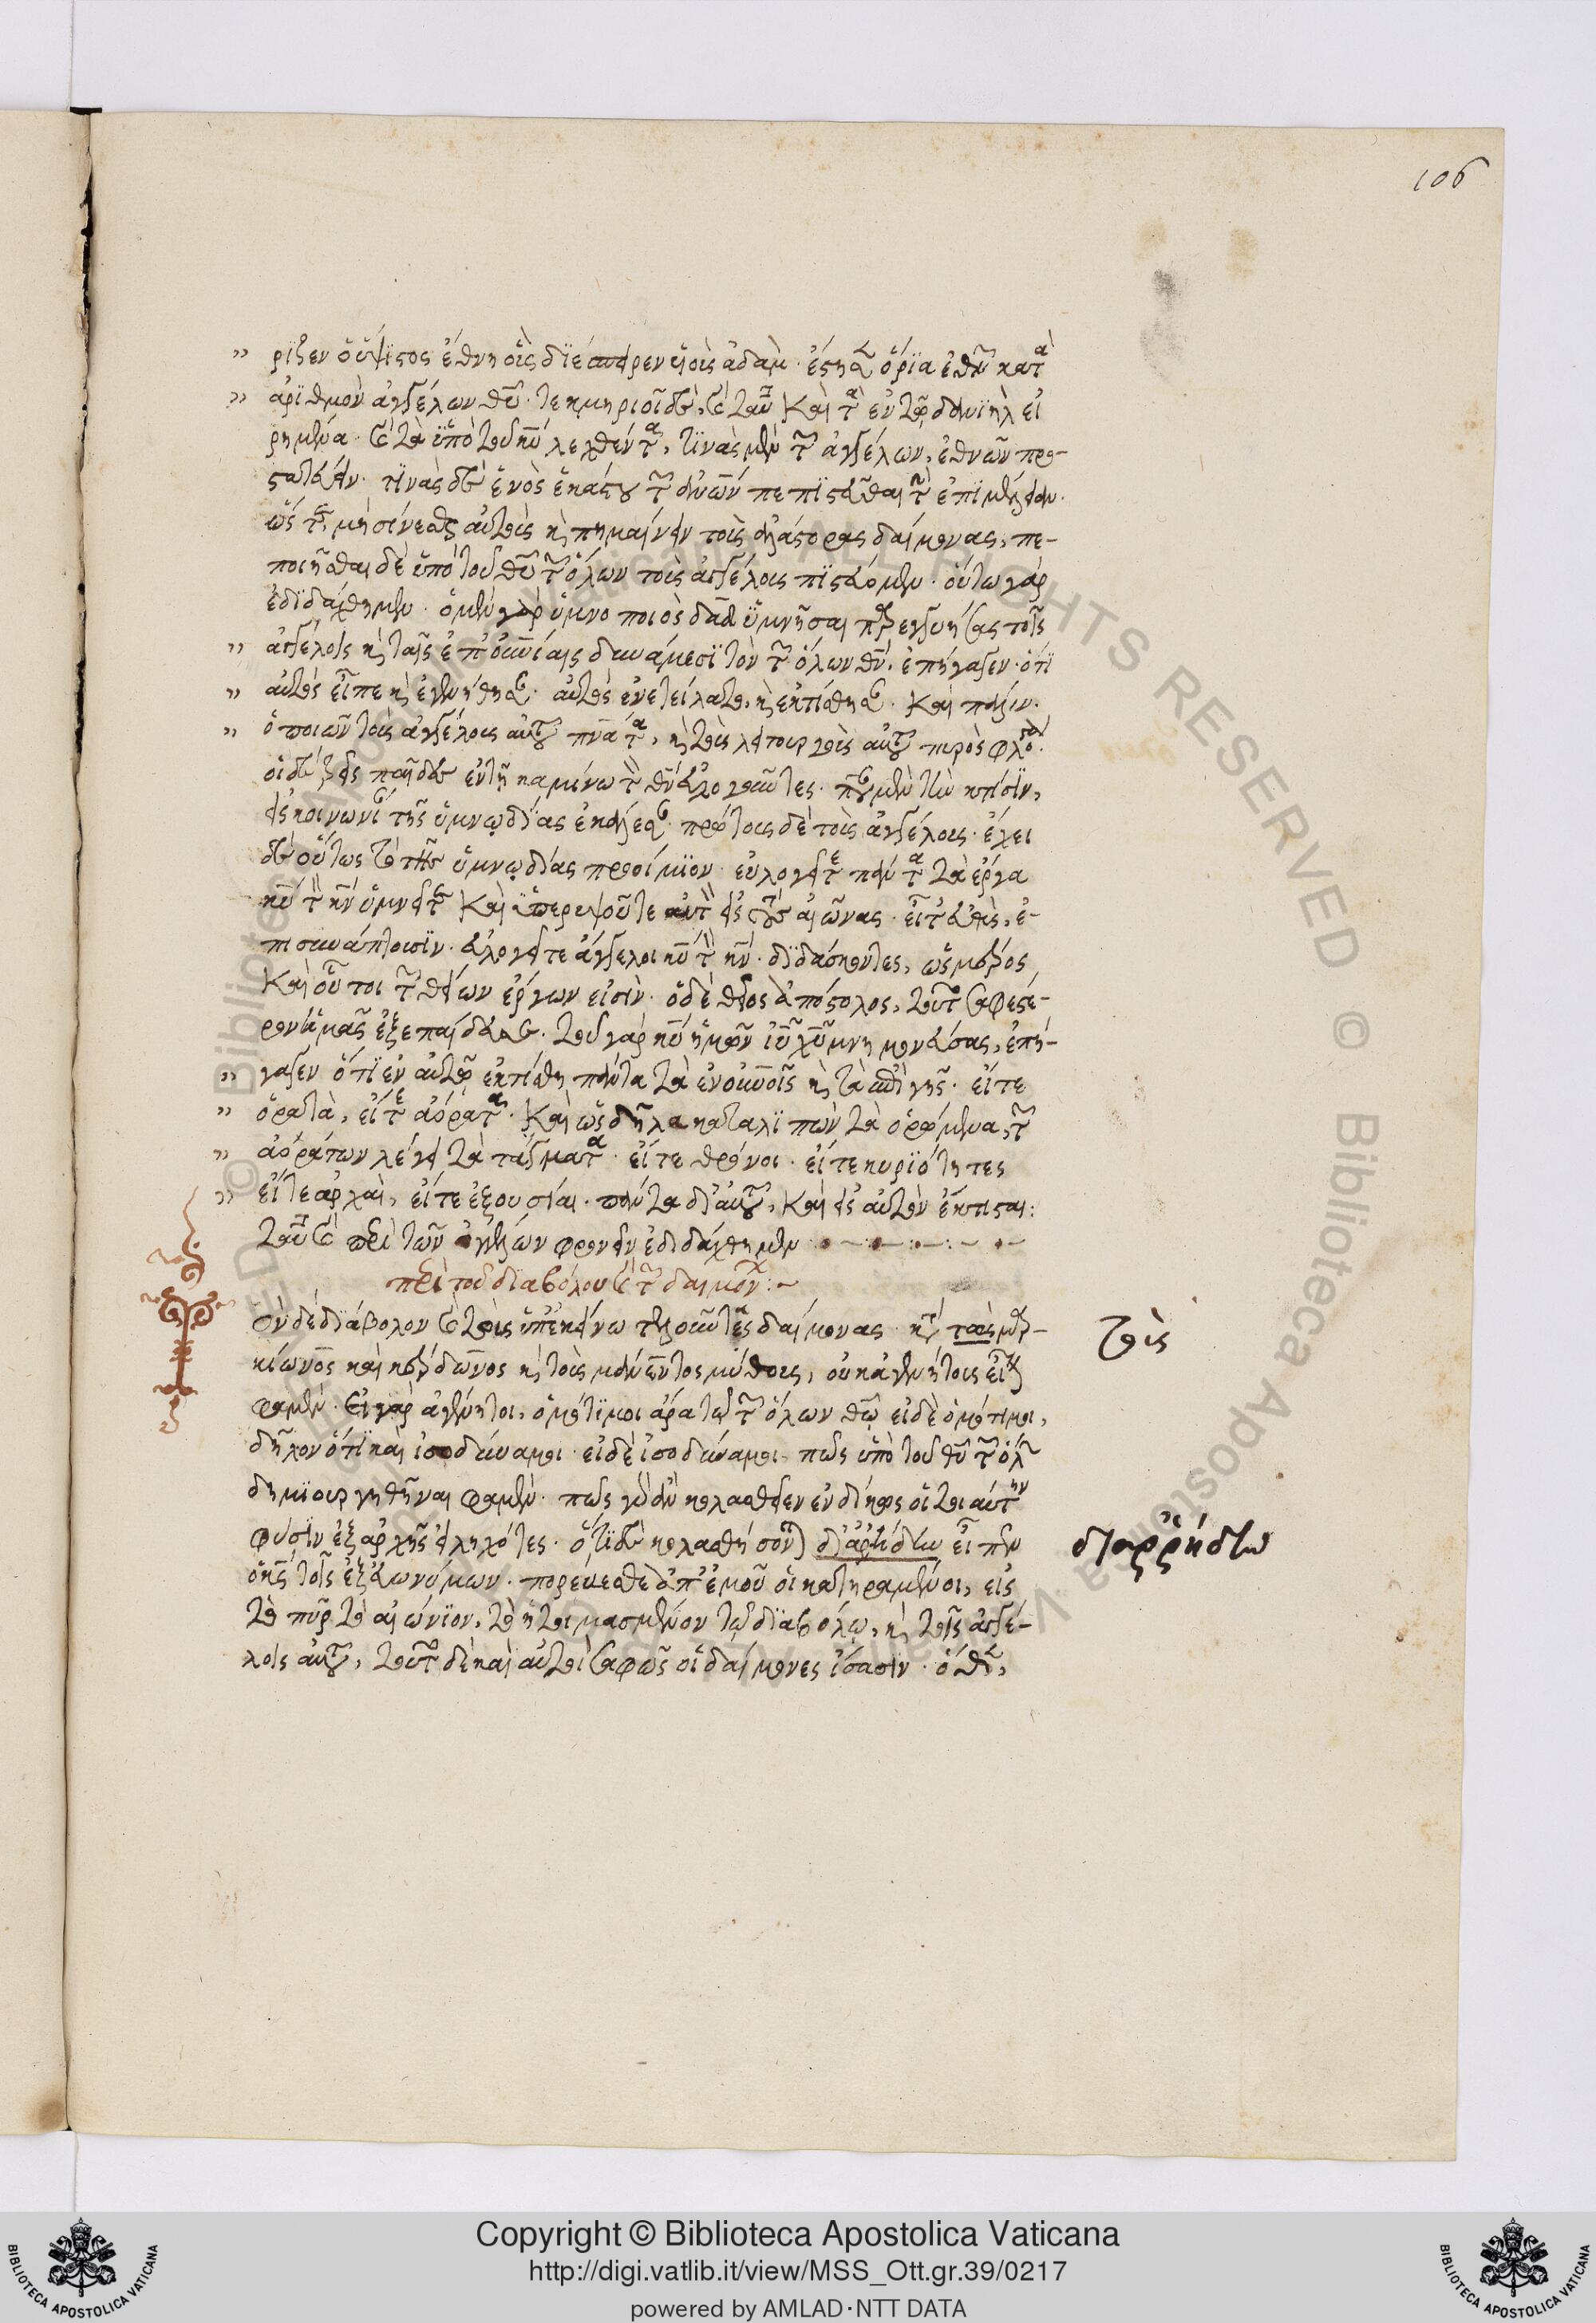 106
ριζεν ὁ ὕψιστος ἔθνη οὓς διέσπειρεν υἱοὺς ἀδάμ. ἔστησεν ὅρια ἐθνῶν κατὰ
ἀριθμὸν ἀγγέλων θυ. τεκμηριοῖ δὲ καὶ ταῦτα καὶ τὰ ἐν τῷ δανιὴλ εἰ
ρημένα. καὶ τὰ ὑπὸ τοῦ κυ λεχθέντα, τινὰς μὲν τῶν ἀγγέλων, ἐθνῶν προ-
στατεύειν. τινὰς δὲ ἑνὸς ἑκάστου τῶν ἀνων πεπιστεῦσθαι τὴν ἐπιμέλειαν.
ὥστε μὴ σίνεσθαι αὐτοὺς κ πημαίνειν τοὺς ἀλάστορας δαίμονας, πε-
ποιῆσθαι δὲ ὑπὸ τοῦ θυ τῶν ὅλων τοὺς ἀγγέλους πιστεύομεν. οὕτω γὰρ
ἐδιδάχθημεν. ὁ μὲν γὰρ ὑμνοποιὸς δαδ ὑμνῆσαι παρεγγυήσας τοῖς
ἀγγέλοις κ ταῖς ἐπουνίαις δυνάμεσι τὸν τῶν ὅλων θν, ἐπήγαγεν. ὅτι
αὐτὸς εἶπε κ ἐγενήθησαν. αὐτὸς ἐνετείλατο, κ ἐκτίσθησαν. καὶ πάλιν.
ὁ ποιῶν τοὺς ἀγγέλους αὐτοῦ πνατα, κ τοὺς λειτουργοὺς αὐτοῦ πυρὸς φλόγα.
οἱ δὲ τρεῖς παῖδες ἐν τῇ καμίνω τὸν θν εὐλογοῦντες. πᾶσαν μὲν τὴν κτίσιν,
εἰς κοινωνίαν τῆς ὑμνῳδίας ἐκάλεσαν. πρώτους δὲ τοὺς ἀγγέλους. ἔχει
δὲ οὕτως τὸ τῆς ὑμνῳδίας προοίμιον. εὐλογεῖτε πάντα τὰ ἔργα
κυ τὸν κν ὑμνεῖτε καὶ ὑπερυψοῦτε αὐτὸν εἰς τοὺς αἰῶνας. εἶτ εὐθὺς, ἐ-
πισυνάπτουσιν. εὐλογεῖτε ἄγγελοι κυ τὸν κν. διδάσκοντες, ὡς μέρος
καὶ οὗτοι τῶν θείων ἔργων εἰσὶν. ὁ δὲ θεῖος ἀπόστολος, τοῦτο σαφέστε-
ρον ἡμᾶς ἐξεπαίδευσε. τοῦ γὰρ κυ ἡμῶν ιυ χυ μνημονεύσας, ἐπή-
γαγεν ὅτι ἐν αὐτῷ ἐκτίσθη πάντα τὰ ἐν οὐνοῖς κ τὰ ἐπὶ γῆς. εἴτε
ὁρατὰ, εἴτε ἀόρατα. καὶ ὡς δῆλα καταλιπὼν τὰ ὁρώμενα, τῶν
ἀοράτων λέγει τὰ τάγματα. εἴτε θρόνοι. εἴτε κυριότητες
εἴτε ἀρχαὶ, εἴτε ἐξουσίαι. πάντα δι αὐτοῦ, καὶ εἰς αὐτὸν ἔκτισται:
ταῦτα περὶ τῶν ἀγγέλων φρονεῖν ἐδιδάχθημεν
περὶ τοῦ διαβόλου καὶ τῶν δαιμόνων:~
ὸν δὲ διάβολον καὶ τοὺς ὑπ ἐκείνω τελοῦντας δαίμονας κατὰ τοὺς μαρ-
κίωνος καὶ κέρδωνος κ τοὺς μάνεντος μύθους, οὐκ ἀγενήτους εἶναι
φαμέν. εἰ γὰρ ἀγένητοι, ὁμότιμοι ἄρα τῷ τῶν ὅλων θῶ. εἰ δὲ ὁμότιμοι,
δῆλον ὅτι καὶ ἰσοδύναμοι. εἰ δὲ ἰσοδύναμοι, πῶς ὑπὸ τοῦ θυ τῶν ὅλων
δημιουργηθῆναι φαμέν. πῶς γὰρ ἂν κολασθεῖεν ἐνδίκως οἱ τοιαύτην
φύσιν ἐξ ἀρχῆς εἰληχότες. ὅτι δὲ κολασθήσονται διαρήδην εἶπεν
ὁ κς τοῖς ἐξ εὐωνύμων. πορεύεσθε ἀπ ἐμοῦ οἱ κατηραμένοι, εἰς
τὸ πῦρ τὸ αἰώνιον, τὸ ἡτοιμασμένον τῷ διαβόλῳ, κ τοῖς ἀγγέ-
λοις αὐτοῦ, τοῦτο δὲ καὶ αὐτοὶ σαφῶς οἱ δαίμονες ἴσασιν. ὅθεν,
τοὺς
διαῤῥήδην
Copyright © Biblioteca Apostolica Vaticana
http://digi.vatlib.it/view/MSS_Ott.gr.39/0217
powered by AMLAD·NTT DATA